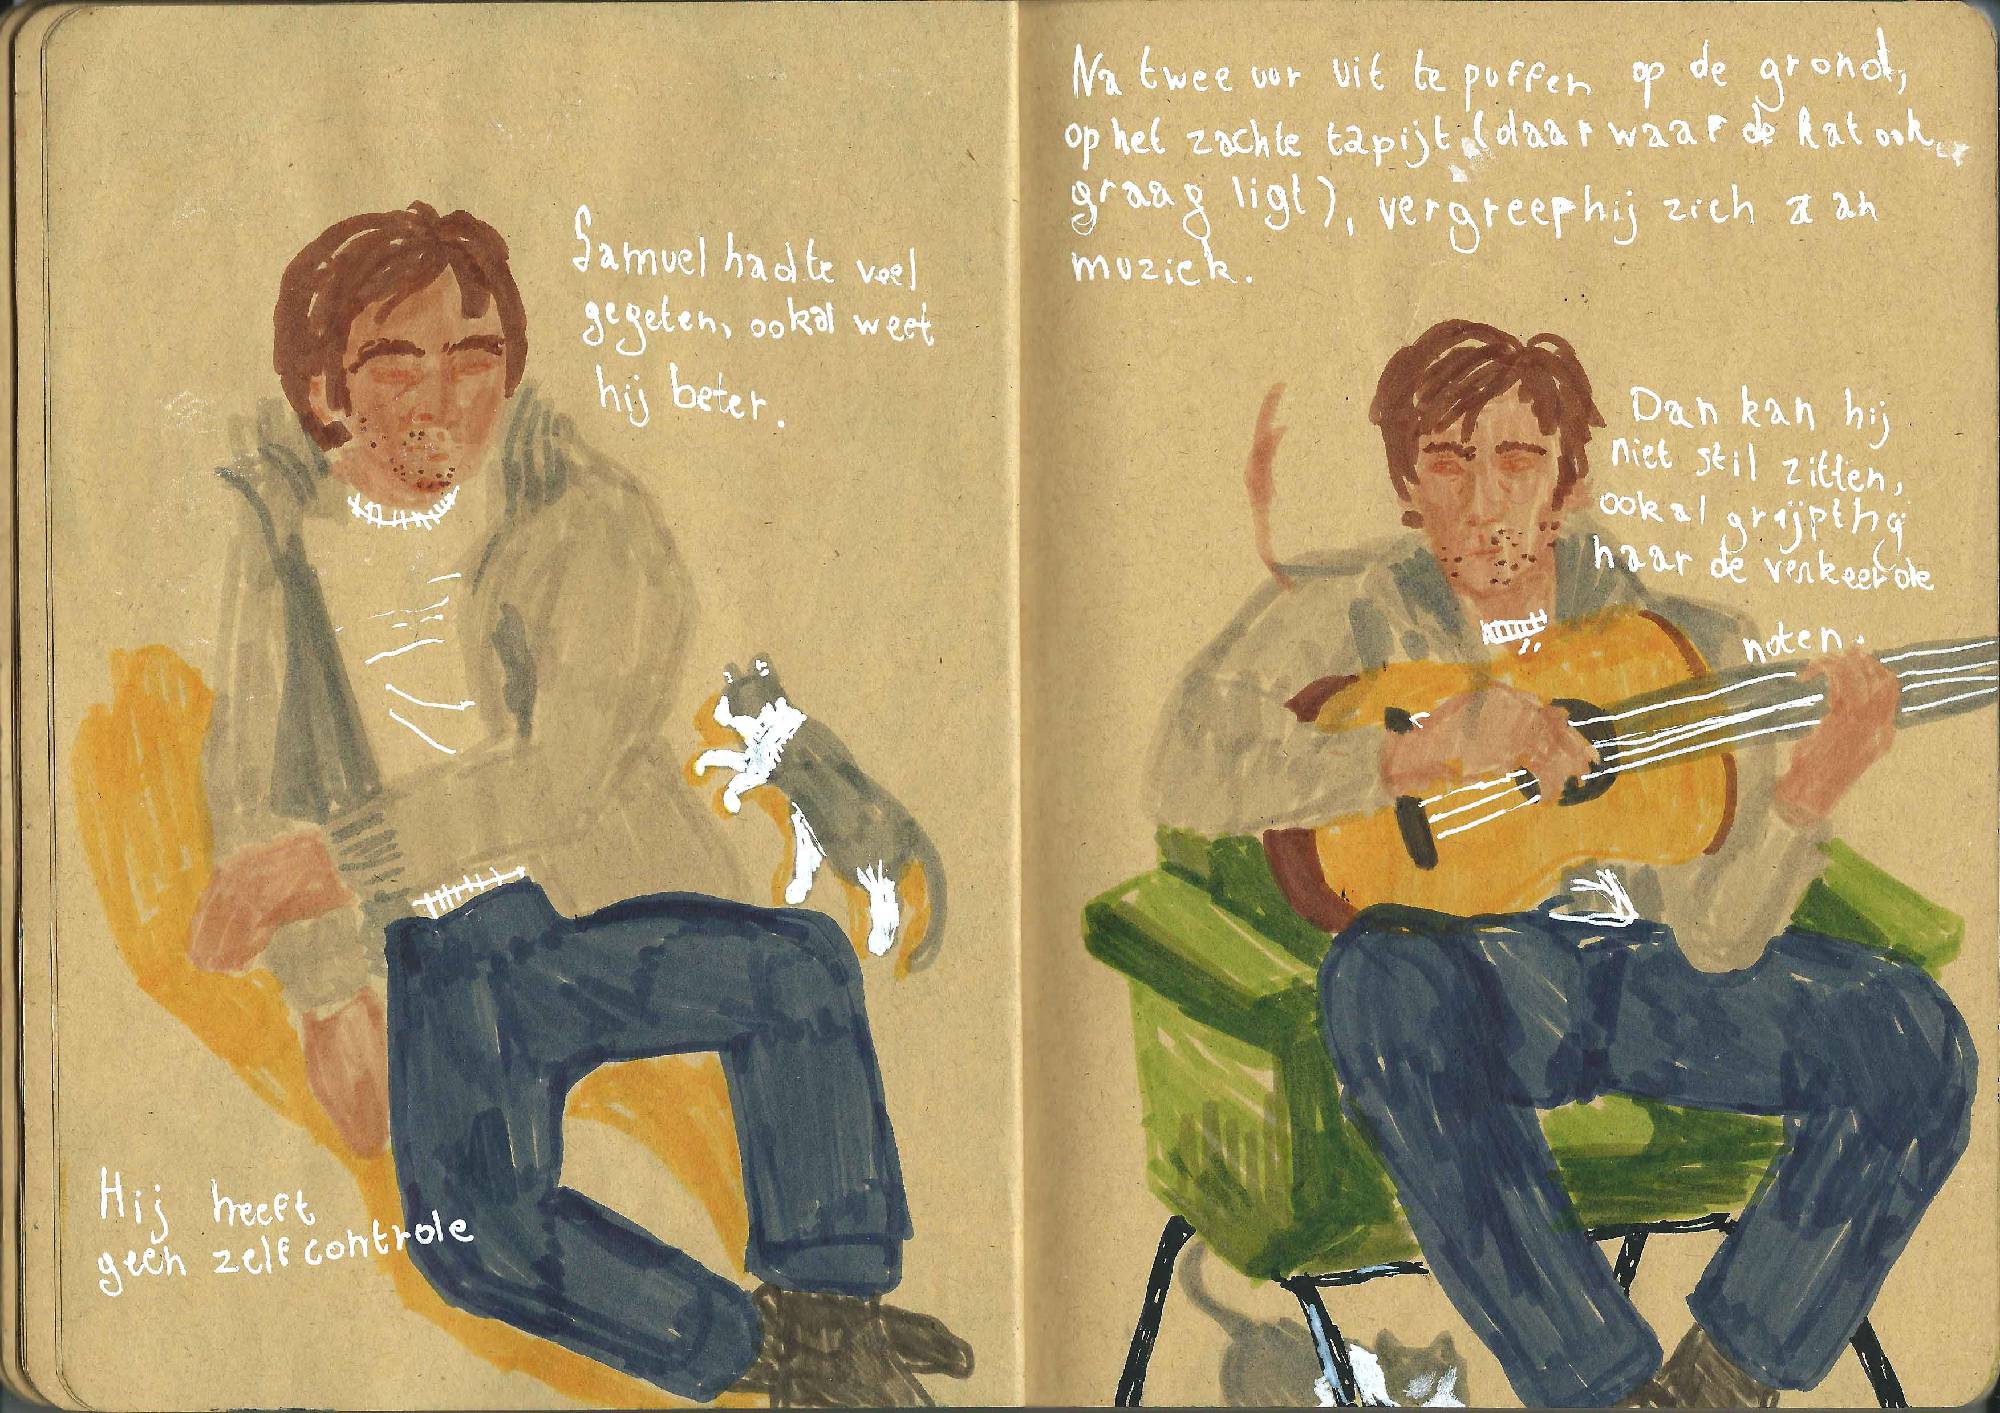 Samuel had te veel
gegeten, ookal weet
hij beter.
Hij heeft
geen zelfcontrole
Na twee uur uit te puffen op de grond,
op het zachte tapijt (daar waar de kat ook
graag ligt), vergreep hij zich aan
muziek.
Dan kan hij
niet stil zitten,
ookal grijpt hij
naar de verkeerde
noten.